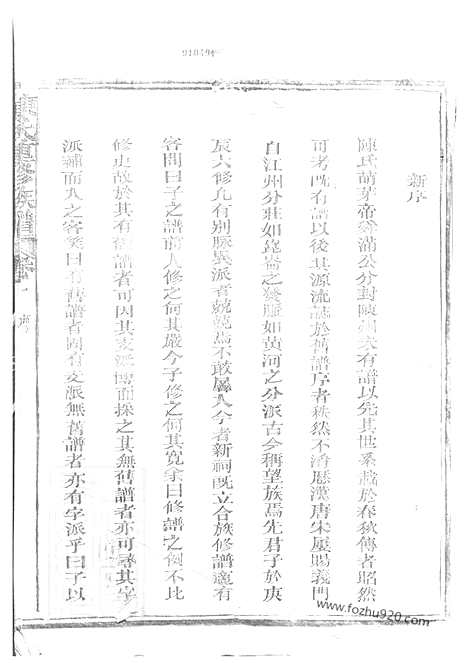 新序
陳氏萌芽帝舜滿公分封陳湖未有譜以先其世系載於春秋傳者昭然
可考既有譜以後其源流誌於舊譜序者秩然不淆歷漢唐宋屢賜義門
自江州分莊如崑崙之發脈如黃河之分派古今稱望族焉先君子於庚
辰六修凡有別脈異派者兢兢焉不敢屬入今者新祠既立合族修譜適有
客問曰子之譜前人修之何其嚴今子修之何其寬余曰修譜之例不比
修史故於其有舊譜者可因其支派博而採之其無舊譜者亦可尋其字
派補而入之客笑曰有舊譜者固有支派無舊譜者亦有字派乎曰予以
陳氏重修族譜
www.fozhu920.com